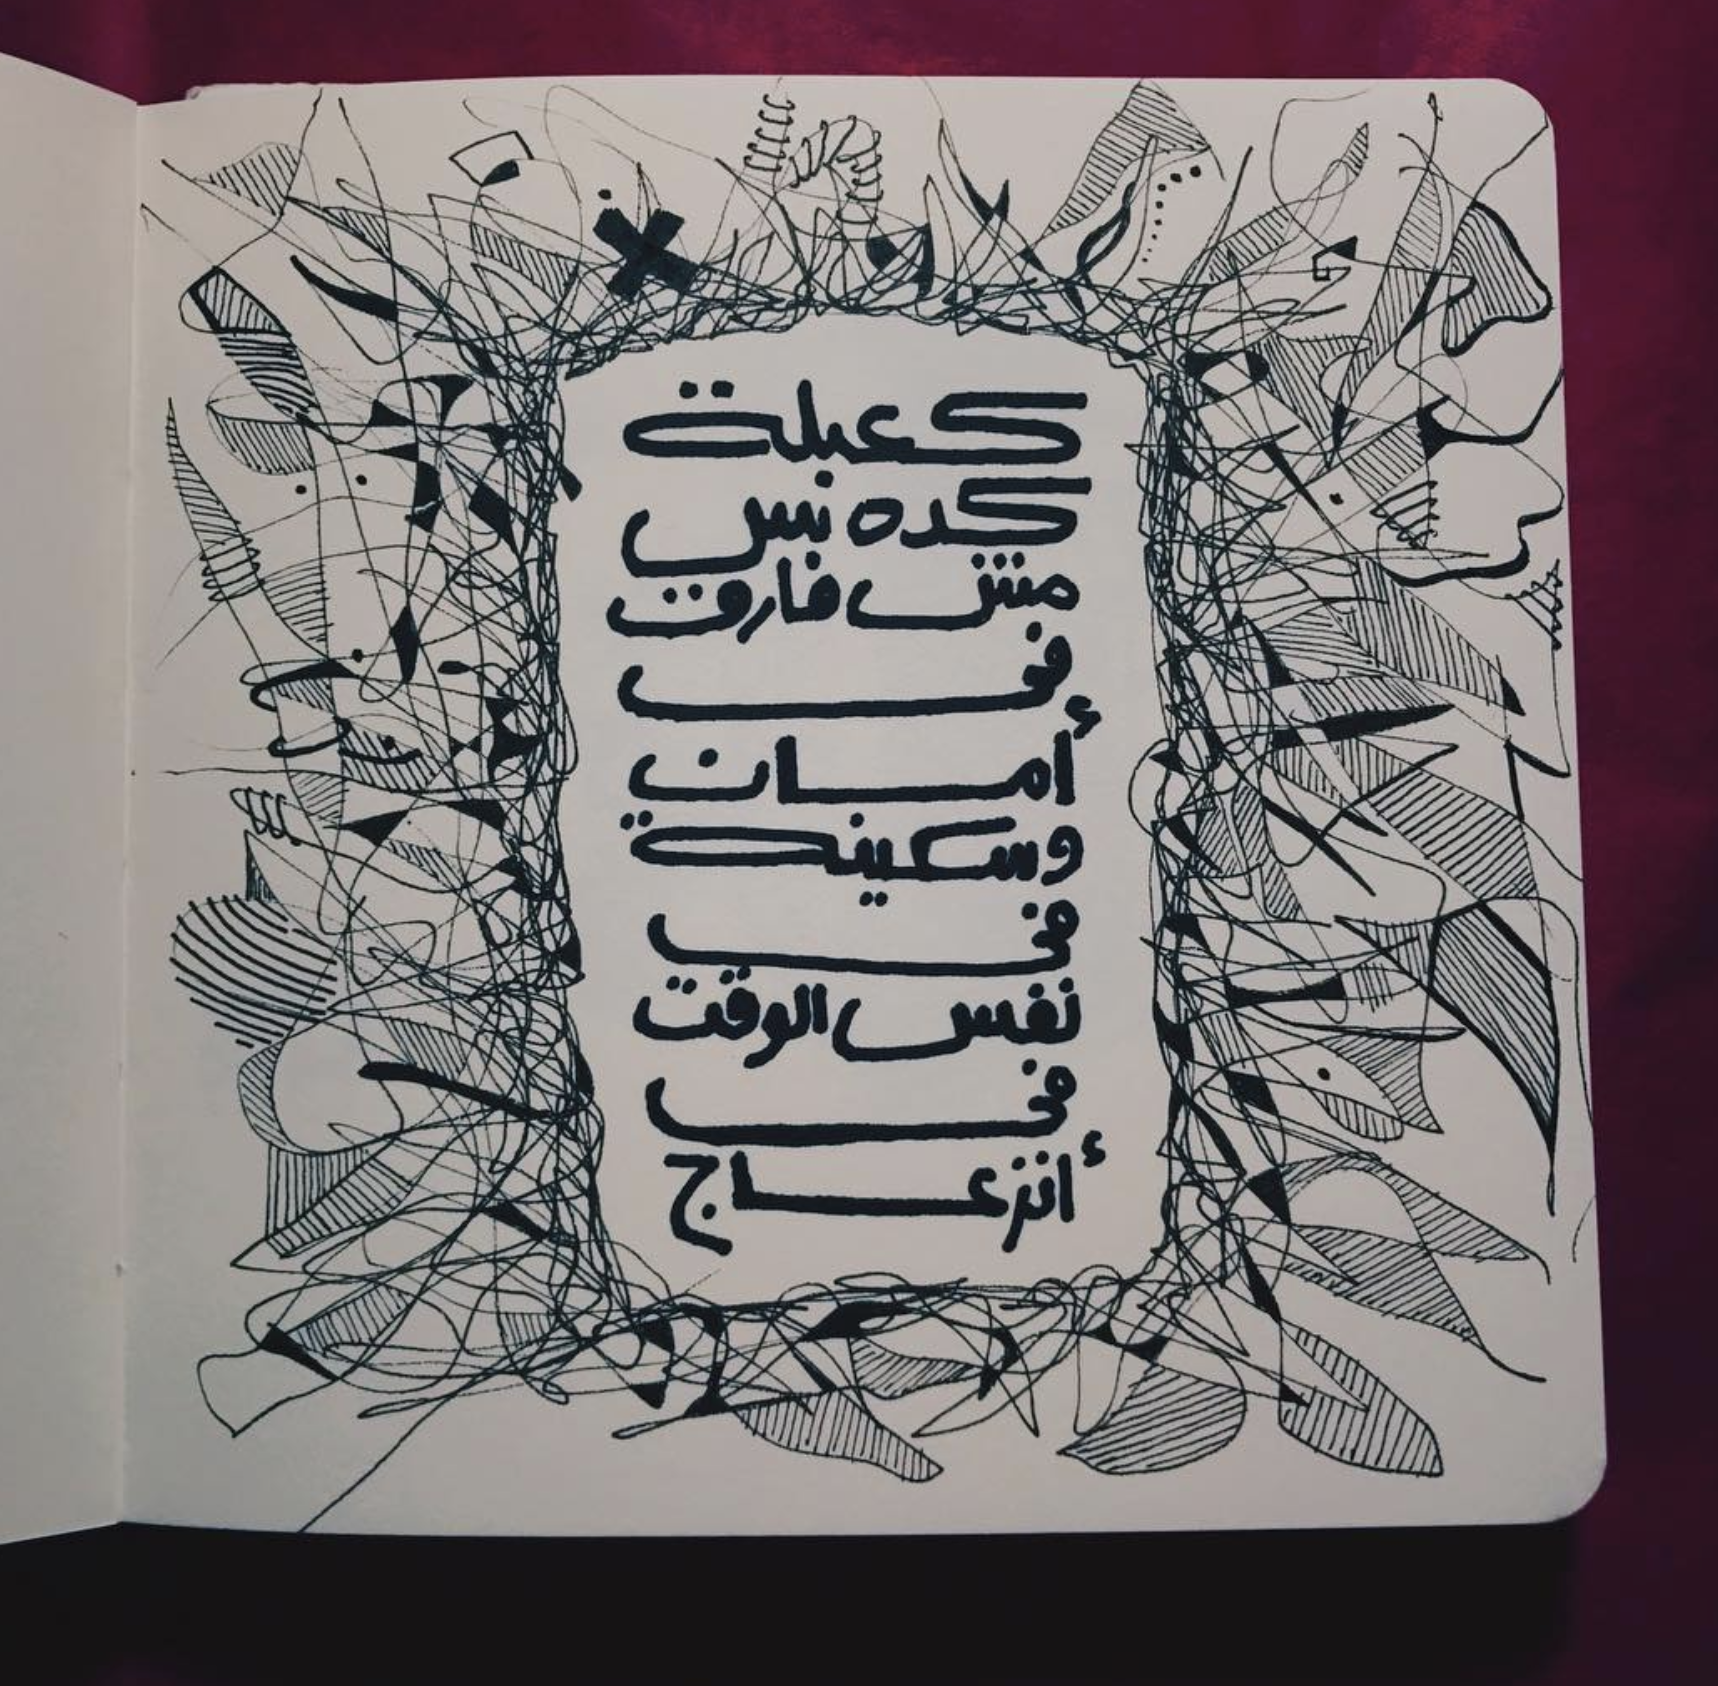 كعبلة
كده بس
مش فارق
في
أمان
وسكينة
في
نفس الوقت
في
أنزعاج